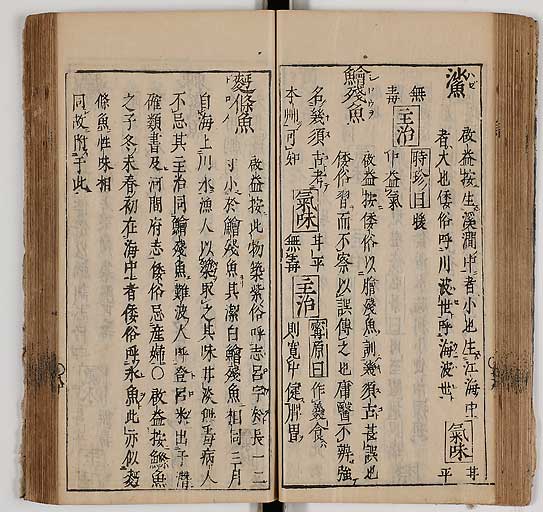 鯊 ハゼ
啟益按生溪澗中者小也生江海中
者大也倭俗呼川波世呼海波世 氣味 甘平
無毒 主治 時珍曰暖
中益氣
鱠殘魚 シロウヲ
啟益按倭俗以膾殘魚訓幾須古甚誤也
倭俗習而不察以誤傳之也庸醫不辨強
名幾須古者
李 可知 氣味 甘平
無毒 主治 甯原曰作羹食
則寬中健脾胃
麪條魚 トロメ
啟益按此物築紫俗呼志呂宇於長一二
寸小於鱠殘魚其潔白鱠殘魚相同三月
自海上川水漁人以梁取之其味甘淡無毒病人
不忌其主治同鱠殘魚難波人呼登呂米出于潛
確類書及河間府志倭俗忌産婦○啟益按鰷魚
之子冬末春初在海中者倭俗呼氷魚此亦似麪
條魚性味相
同故附于此